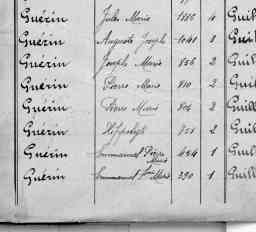 Guérin Jules Marie 1186 4 Guil
Guérin Auguste Joseph 1041 2 Guil
Guérin Joseph Marie 856 2 Guil
Guérin Pierre Marie 810 2 Guill
Guérin Marie 804 2 Guill
Guérin Hippolyte 2 Guil
Guérin Emmanuel Pierre Marie 484 1 Guil
Guérin Emmanuel Marie 290 1 Guil